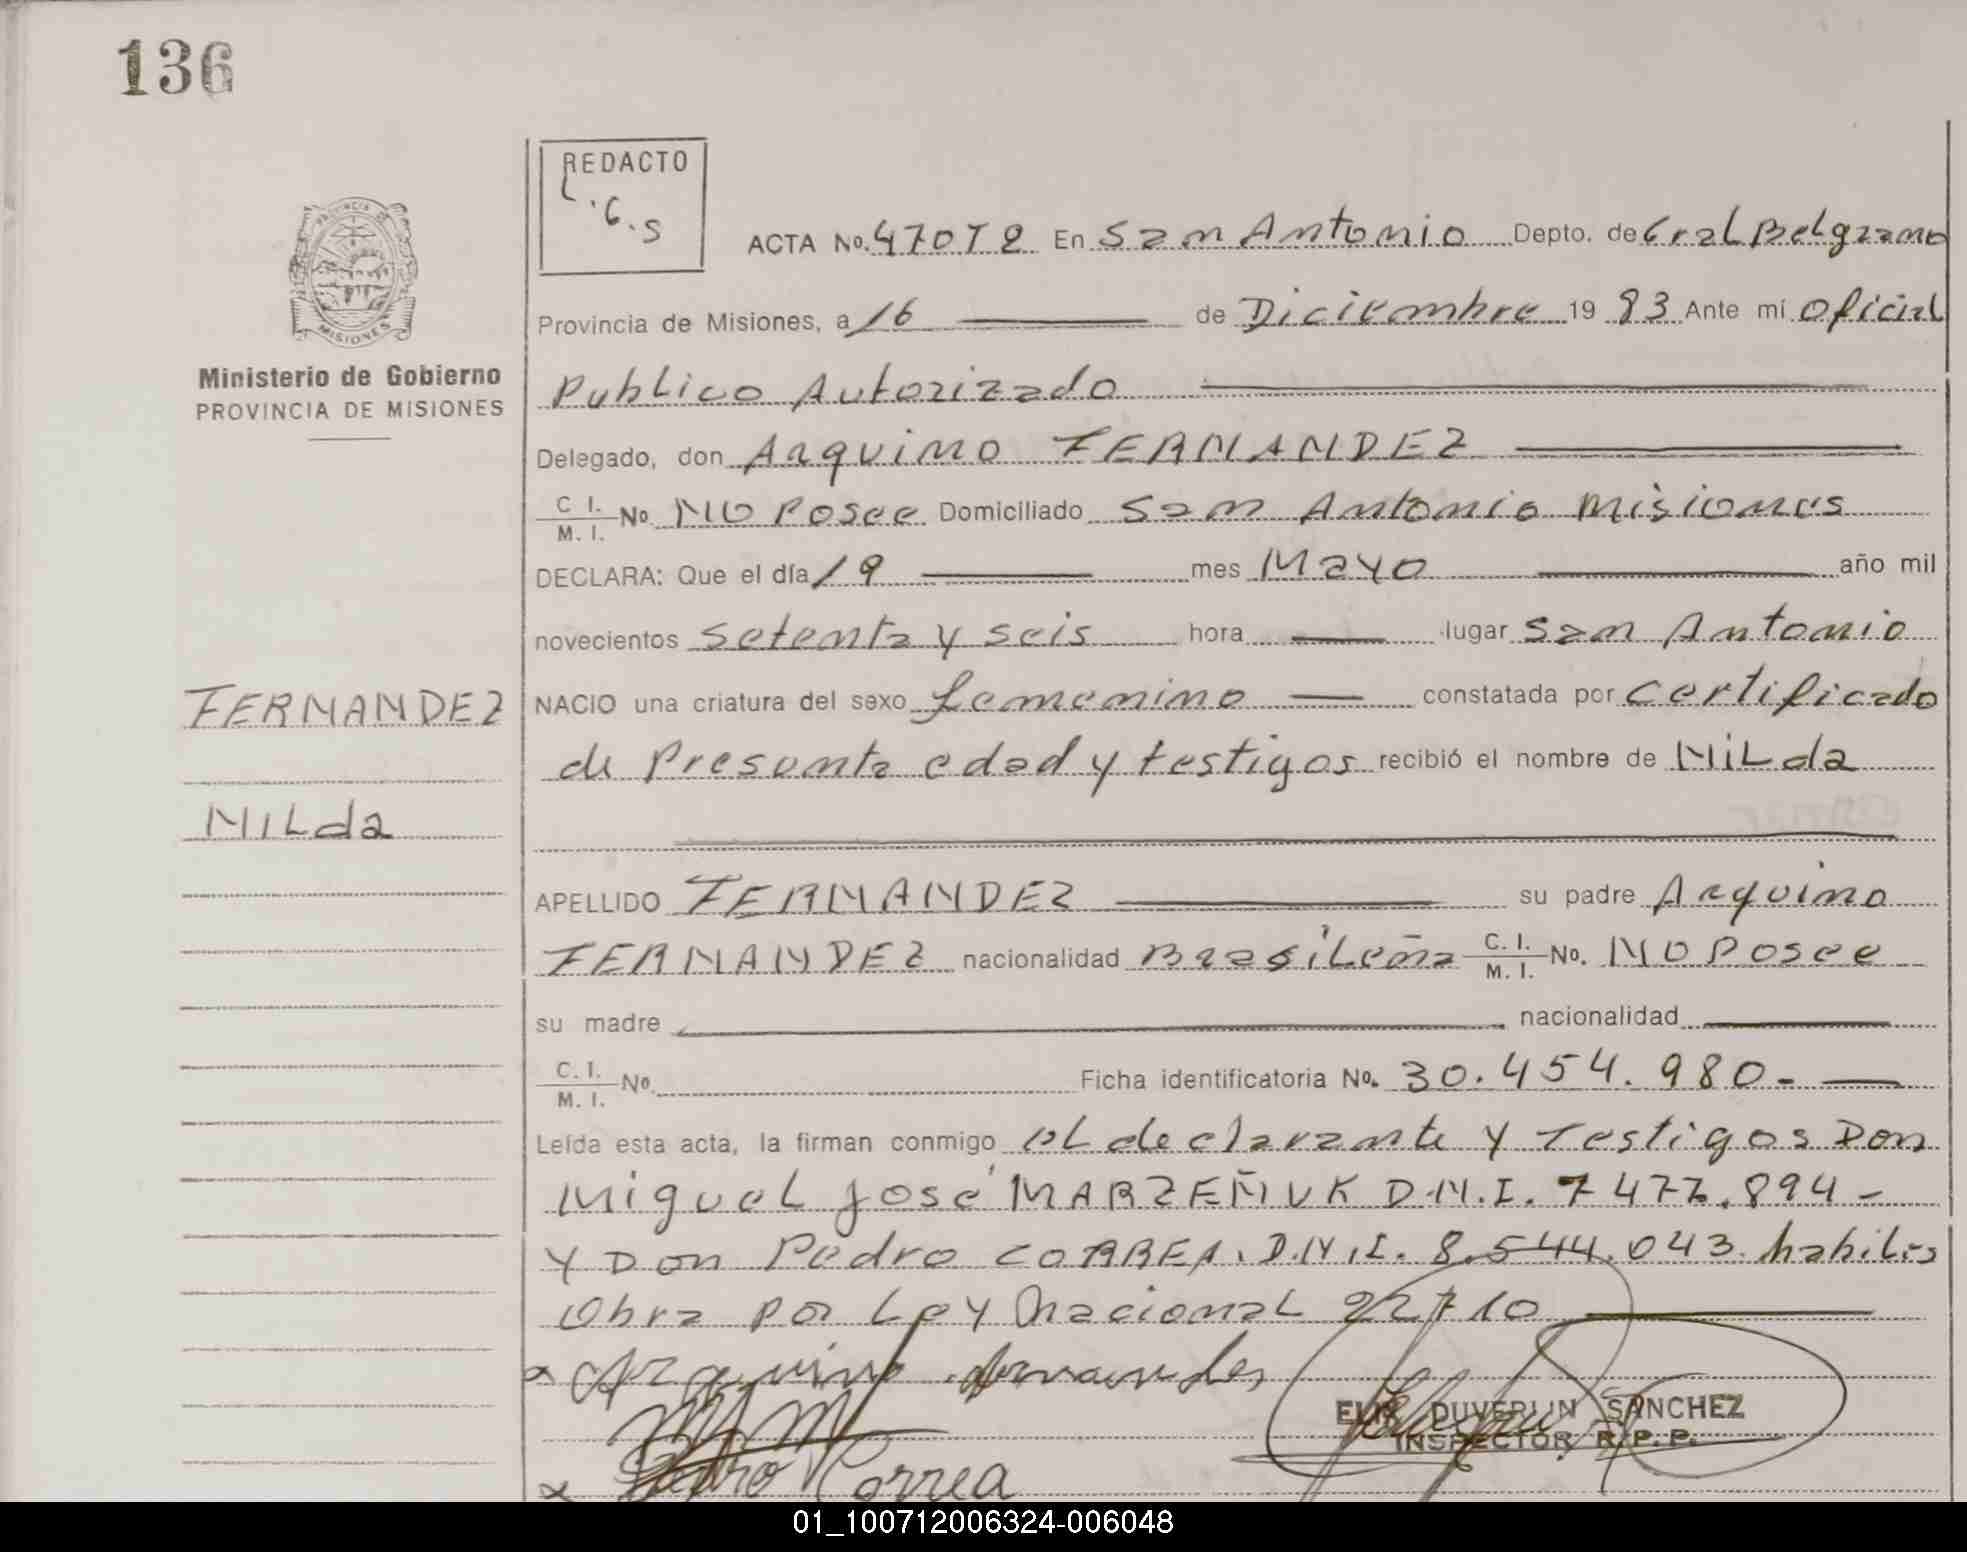 136
REDACTO
L.G.S
ACTA No. 470T2 En San Antonio Depto. de Gral Belgrano
PROVINCIA DE
MISIONES
Provincia de Misiones, a 16 de Diciembre 19 83 Ante mí Oficial
Ministerio de Gobierno
PROVINCIA DE MISIONES
Publico Autorizado
Delegado, don Arquino FERNANDEZ
C. I. / M. I. No. NO Posee Domiciliado San Antonio Misiones
DECLARA: Que el día 19 mes Mayo año mil
novecientos setenta y seis hora lugar San Antonio
FERNANDEZ
NACIO una criatura del sexo femenino constatada por certificado
de Presunta edad y testigos recibió el nombre de NiLda
NILda
APELLIDO FERNANDEZ su padre Arquino
FERNANDEZ nacionalidad Brasileña C. I. / M. I. No. NO Posee
su madre nacionalidad
C. I. / M. I. No. Ficha identificatoria No. 30.454.980-
Leída esta acta, la firman conmigo el declarante y Testigos Don
Miguel José MARZEÑUK D.N.I. 7 477.894-
Y Don Pedro CORREA. D.N.I. 8.544.043. habiles
Obra por Ley Nacional 22710
x Arquino fernandes
ELIX DUVERLIN SANCHEZ
INSPECTOR R.P.P.
x Pedro Correa
01_100712006324-006048